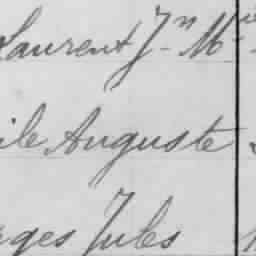 Laurent Jn Mie
ile Auguste
rges Jules